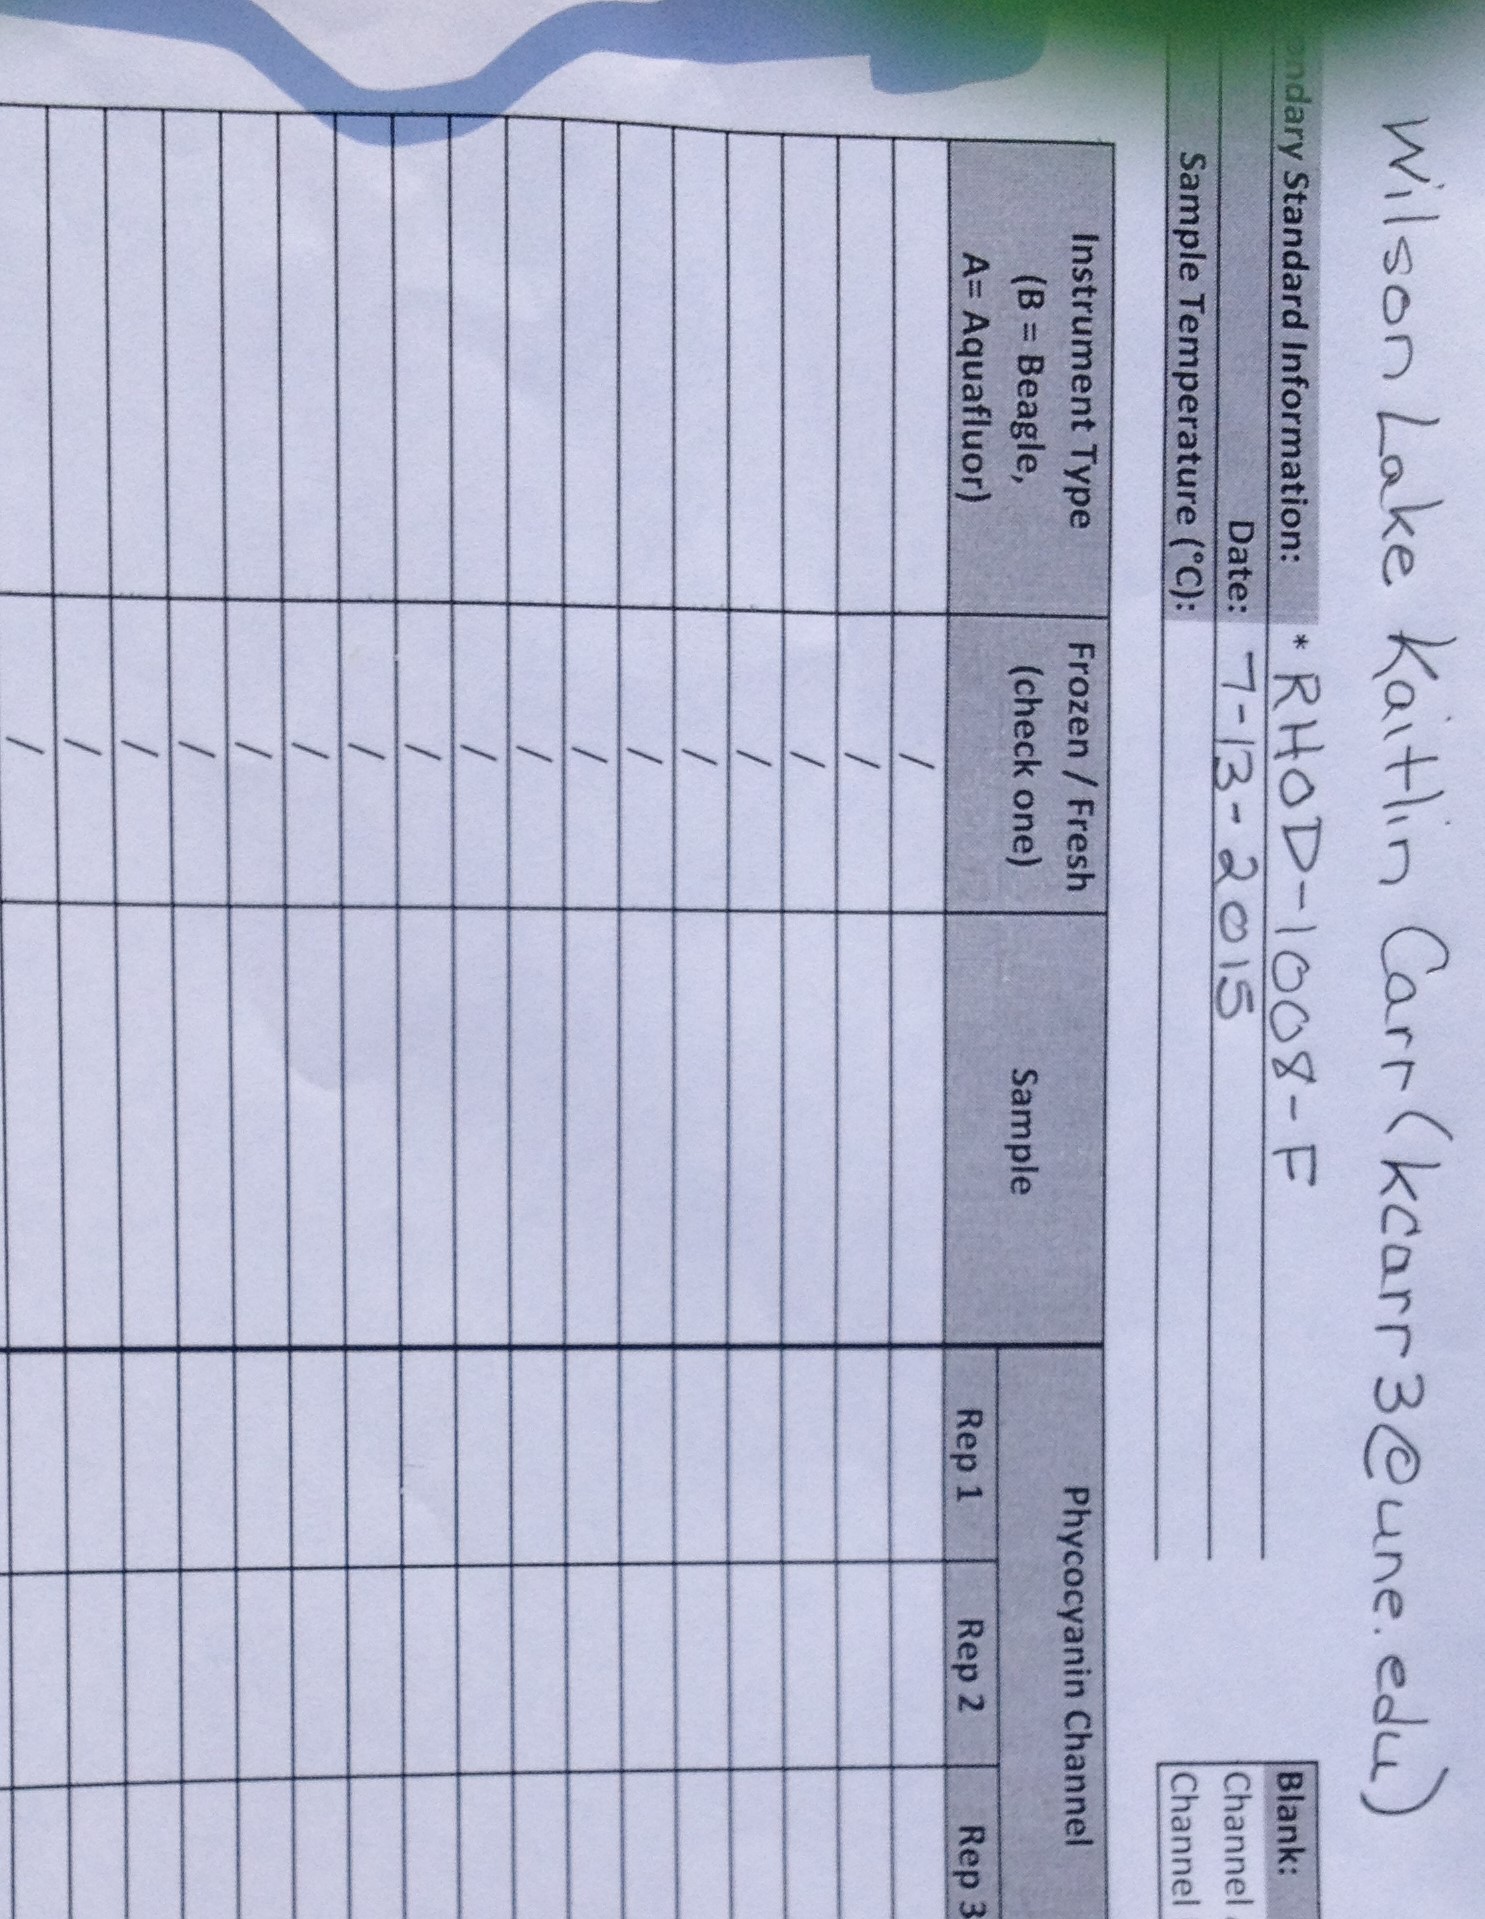 Wilson Lake Kaitlin Carr (kcarr3@une.edu)
ndary Standard Information: * RHOD-1008-F
Date: 7-13-2015
Sample Temperature (°C):
Blank:
Channel
Channel
Instrument Type
(B = Beagle,
A= Aquafluor)
Frozen / Fresh
(check one)
Sample
Phycocyanin Channel
Rep 1
Rep 2
Rep 3
/
/
/
/
/
/
/
/
/
/
/
/
/
/
/
/
/